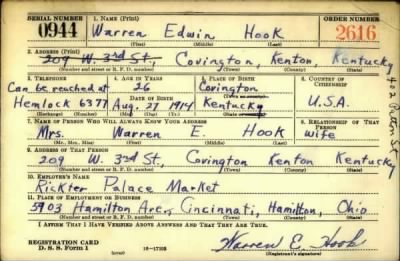 SERIAL NUMBER 1. NAME (Print) ORDER NUMBER
0944 Warren Edwin Hook 2616
(First) (Middle) (Last)
2. ADDRESS (Print)
209 W. 3rd St., Covington, Kenton, Kentucky
(Number and street or R. F. D. number) (Town) (County) (State)
3. TELEPHONE 4. AGE IN YEARS 5. PLACE OF BIRTH 6. COUNTRY OF CITIZENSHIP
Can be reached at 26 Covington
(Town or county)
DATE OF BIRTH
Hemlock 6377 Aug. 27 1914 Kentucky U.S.A.
(Exchange) (Number) (Mo.) (Day) (Yr.) (State or country)
7. NAME OF PERSON WHO WILL ALWAYS KNOW YOUR ADDRESS 8. RELATIONSHIP OF THAT PERSON
Mrs. Warren E. Hook wife
(Mr., Mrs., Miss) (First) (Middle) (Last)
9. ADDRESS OF THAT PERSON
209 W. 3rd St., Covington Kenton Kentucky
(Number and street or R. F. D. number) (Town) (County) (State)
10. EMPLOYER'S NAME
Rickter Palace Market
11. PLACE OF EMPLOYMENT OR BUSINESS
5903 Hamilton Ave., Cincinnati, Hamilton, Ohio
(Number and street or R. F. D. number) (Town) (County) (State)
I AFFIRM THAT I HAVE VERIFIED ABOVE ANSWERS AND THAT THEY ARE TRUE.
REGISTRATION CARD
D. S. S. Form 1 (over) 16-17105 Warren E. Hook
(Registrant's signature)